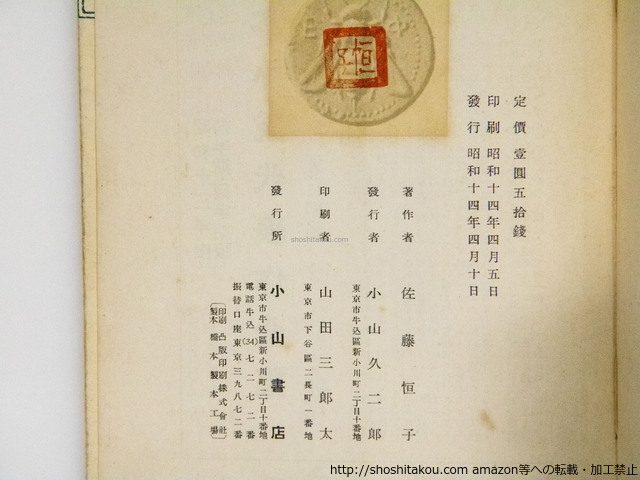 定價 壹圓五拾錢
印刷 昭和十四年四月五日
發行 昭和十四年四月十日
著作者 佐藤恒子
東京市牛込區新小川町二丁目十番地
發行者 小山久二郎
東京市下谷區二長町一番地
印刷者 山田三郎太
發行所 小山書店
東京市牛込區新小川町二丁目十番地
電話牛込(34)七二七二番
振替口座東京三九八七二番
印刷 凸版印刷株式會社
製本 橋本製本工場
shoshitakou.com
http://shoshitakou.com amazon等への転載・加工禁止